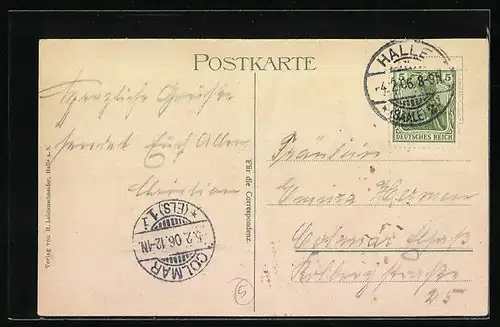 POSTKARTE
HALLE
-4.2.06. 8-9N
* (SAALE)
5 5
DEUTSCHES REICH
Herzliche Grüsse
sendet Euch Allen
Christian
COLMAR
5.2.06.12-1N.
* (ELS) 1.
Für die Correspondenz.
Verlag von R. Leissenschneider, Halle a. S.
Fräulein
Hermen
Colmar Elsaß
straße
25
5